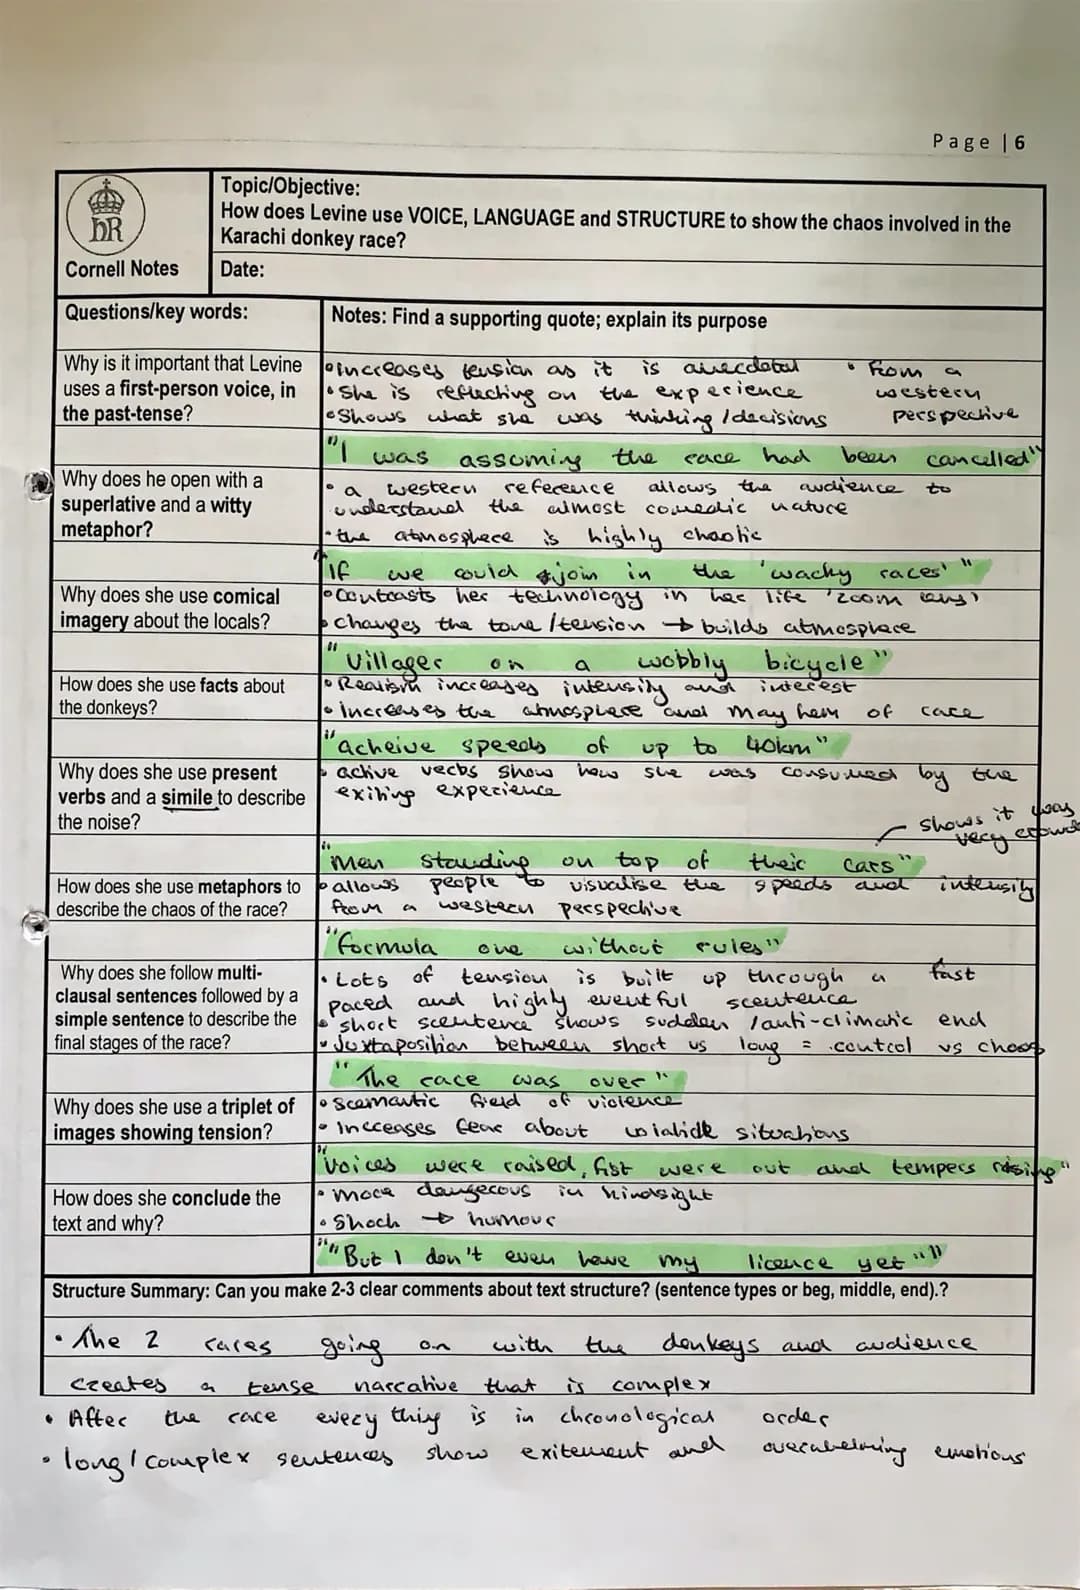 Page | 6
hR
Cornell Notes
Topic/Objective:
How does Levine use VOICE, LANGUAGE and STRUCTURE to show the chaos involved in the
Karachi donkey race?
Date:
Questions/key words:
Notes: Find a supporting quote; explain its purpose
Why is it important that Levine
uses a first-person voice, in
the past-tense?
• increases tension as it is anecdotal
• She is reflecting on the experience
• Shows what she was thinking/decisions
• from a
western
perspective
"I was assuming the race had been cancelled"
Why does he open with a
superlative and a witty
metaphor?
• a western reference allows the audience to
understand the almost comedic nature
• the atmosphere is highly chaotic
"If we could join in the 'wacky races'"
Why does she use comical
imagery about the locals?
• Contrasts her technology in her life 'zoom lens'
• changes the tone/tension → builds atmosphere
"Villager on a wobbly bicycle"
How does she use facts about
the donkeys?
• Realism increases intensity and interest
• increases the atmosphere and may hem of race
"acheive speeds of up to 40km"
Why does she use present
verbs and a simile to describe
the noise?
• active verbs show how she was consumed by the
exiting experience
shows it was
very crowded
"men standing on top of their cars"
How does she use metaphors to
describe the chaos of the race?
• allows people to visualise the speeds and intensity
from a western perspective
"formula one without rules"
Why does she follow multi-
clausal sentences followed by a
simple sentence to describe the
final stages of the race?
• Lots of tension is built up through a fast
paced and highly eventful scentence
• short scentence shows sudden /anti-climatic end
• Juxtaposition between short vs long = control vs chaos
"The race was over"
Why does she use a triplet of
images showing tension?
• Scemantic field of violence
• Increases fear about situations
"voices were raised, fist were out and tempers rising"
How does she conclude the
text and why?
• more dangerous in hindsight
• Shock → humour
""But I don't even have my licence yet""
Structure Summary: Can you make 2-3 clear comments about text structure? (sentence types or beg, middle, end).?
• The 2 races going on with the donkeys and audience
creates a tense narrative that is complex
• After the race every thing is in chronological order
• long/complex sentences show exitement and emotions